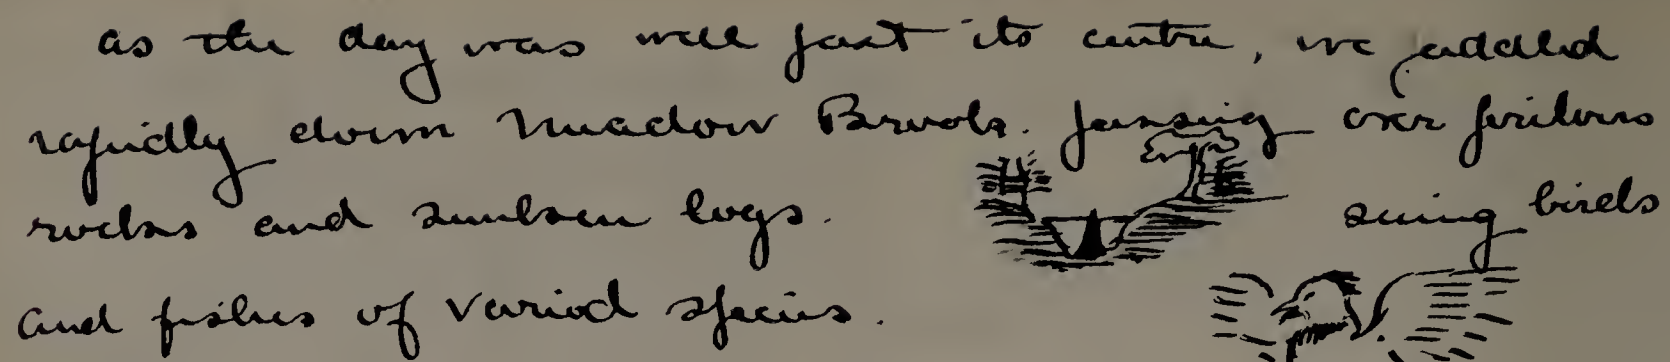 as the day was well past its centre, we paddled
rapidly down Meadow Brook. passing over perilous
rocks and sunken logs. seeing birds
and fishes of varied species.